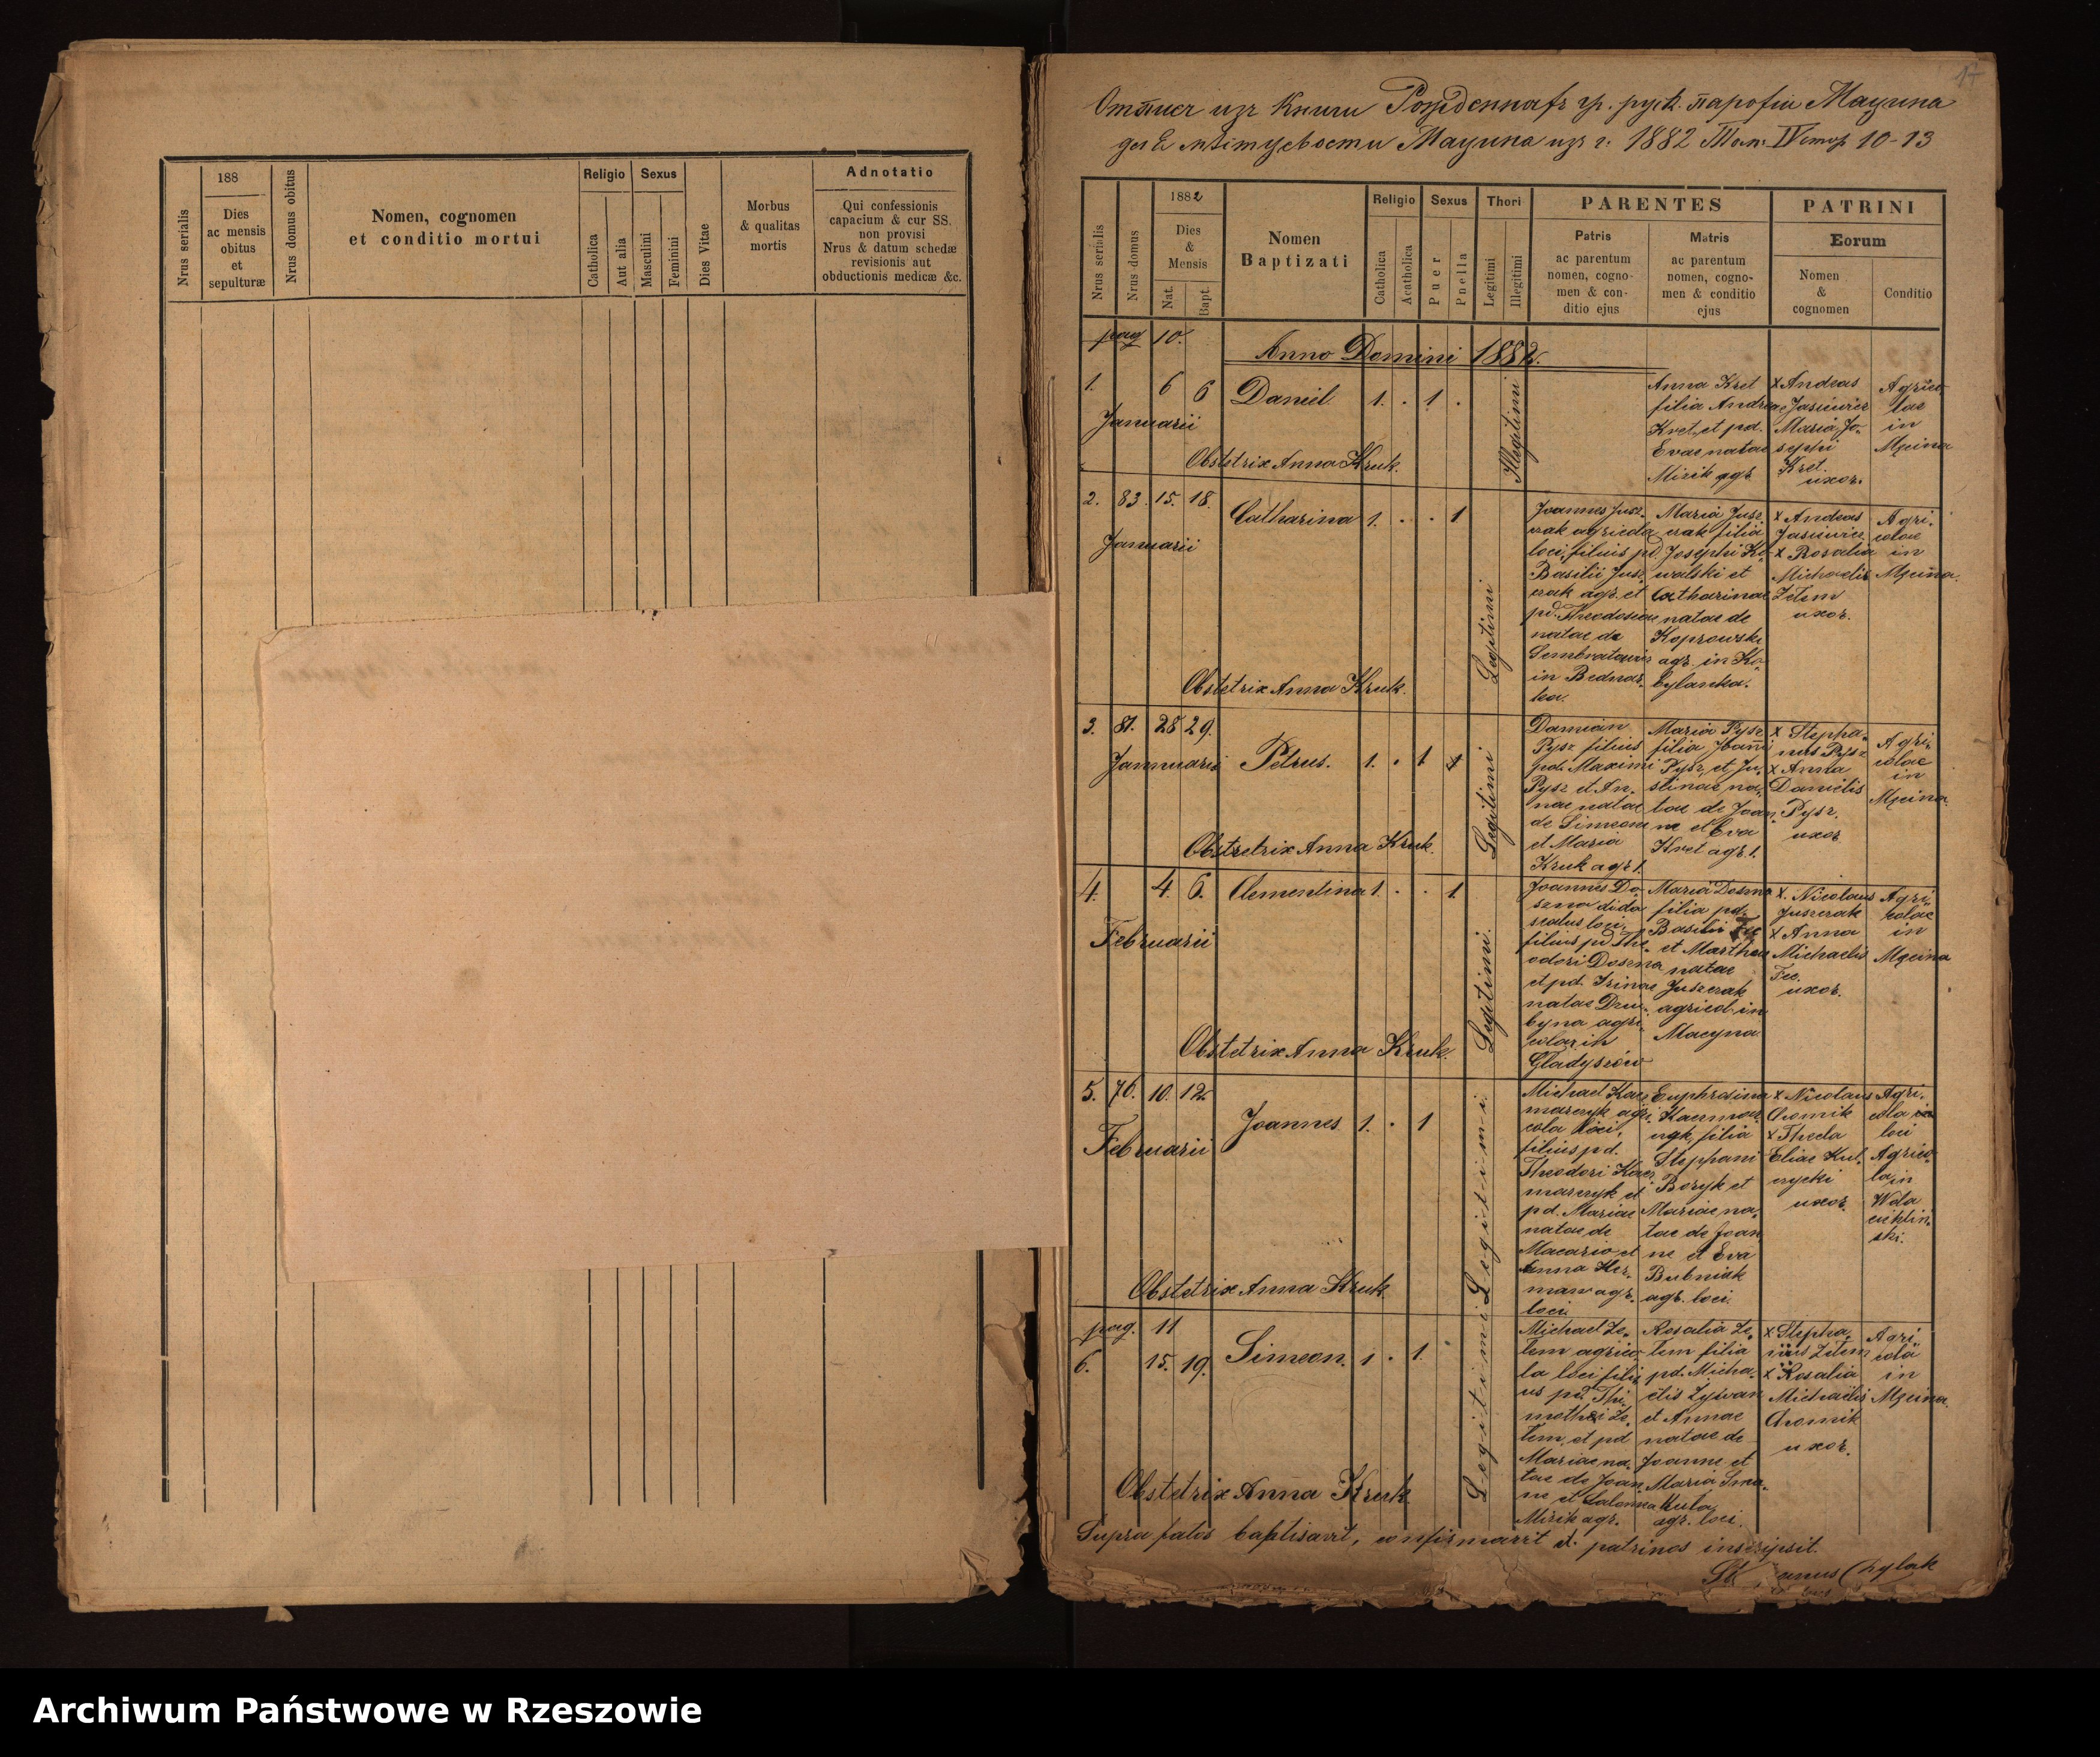 188
Nrus serialis
Dies
ac mensis
obitus
et
sepulturæ
Nrus domus obitus
Nomen, cognomen
et conditio mortui
Religio
Catholica
Aut alia
Sexus
Masculini
Feminini
Dies Vitae
Morbus
& qualitas
mortis
Adnotatio
Qui confessionis
capacium & cur SS.
non provisi
Nrus & datum schedæ
revisionis aut
obductionis medicæ &c.
17
Отпиcъ изъ Книги гр. руск. парохіи Мацина
Мацина изъ г. 1882 Том. IV стор 10-13
Nrus serialis
Nrus domus
1882
Dies
&
Mensis
Nat.
Bapt.
Nomen
Baptizati
Religio
Catholica
Acatholica
Sexus
Puer
Puella
Thori
Legitimi
Illegitimi
PARENTES
Patris
ac parentum
nomen, cogno-
men & con-
ditio ejus
Matris
ac parentum
nomen, cogno-
men & conditio
ejus
PATRINI
Eorum
Nomen
&
cognomen
Conditio
pag 10.
Anno Domini 1882.
1. 6 6 Daniel 1. . 1 .
Januarii
Illegitimi
Anna Kret
filia Andreae
Kret, et pd.
Evae natae
Mizik agr.
x Andreas
Jasiwicz
Maria Jo-
sephi
Kret.
uxor.
Agrico
lae
in
Męcina
Obstetrix Anna Kruk.
2. 83. 15. 18. Catharina 1. . . 1
Januarii
Legitimi
Joannes Jusz-
czak agricola
loci, filius pd.
Basilii Jusz-
czak agr. et
pd. Theodosiae
natae de
in Bednar-
ka.
Maria Jusz
czak filia
Josephi Ko-
walski et
Catharinae
natae de
Koprowski
agr. in Ko-
bylanka.
x Andreas
Jasiwicz
x Rosalia
Michaelis
Zetem
uxor.
Agri-
colae
in
Męcina.
Obstetrix Anna Kruk.
3. 81. 28 29. Petrus. 1. . 1
Jannuarii
Legitimi
Damian
Pysz filius
pd. Maximi
Pysz et An-
nae natae
de Simeone
et Maria
Kruk agr. l.
Maria Pysz
filia Joanni
Pysz, et Ju-
stinae na-
tae de Joan-
ne et Eva
Kret agr. l.
x Stepha-
nus Pysz
x Anna
Danielis
Pysz.
uxor
Agri-
colae
in
Męcina.
Obstetrix Anna Kruk.
4. 4. 6. Clementina 1. . . 1.
Februarii
Legitimi.
Joannes Do-
szna dida
scalus loci,
filius pd The-
odori Doszna
et pd. Irinae
natae Dzu-
byna agri-
colar in
Gladyszów
Maria Doszna
filia pd.
Basilii Fec
et Marthae
natae
Juszczak
agricol. in
Macyna.
x. Nicolaus
Juszczak
x Anna
Michaelis
Fec.
uxor.
Agri-
colae
in
Męcina
Obstetrix Anna Kruk.
5. 76. 10. 12. Joannes 1. . 1
Februarii
Legitimi.
Michael Kacz-
marczyk agri-
cola loci,
filius pd.
Theodori Kacz-
marczyk et
pd. Mariae
natae de
Macario et
Anna Her-
man agr.
loci.
Euphrosina
Kaczmar-
czyk, filia
Stephani
Boczyk et
Mariae na-
tae de Joan
ne et Eva
Bubniak
agr. loci.
x Nicolaus
Chomik
x Thecla
Eliae
uxor.
Agri-
cola
loci
Agrico-
la in
Obstetrix Anna Kruk.
pag. 11
6. 15. 19. Simeon. 1 . 1.
Legitimi
Michael Ze-
tem agrico-
la loci fili-
us pd. Thi-
mothei Ze-
tem, et pd
Mariae na-
tae de Joan-
ne et Salomea
Mizik agr.
Rosalia Ze-
tem filia
pd. Micha-
elis Zyswan
et Annae
natae de
Joanne et
Maria Sma-
kula
agr. loci.
x Stepha-
nus Zetem
x Rosalia
Michaelis
Chomik
uxor.
Agri-
cola
in
Męcina.
Obstetrix Anna Kruk
Supra fatos baptisavit, confirmavit et patrinos inscripsit.
Chylak
Archiwum Państwowe w Rzeszowie